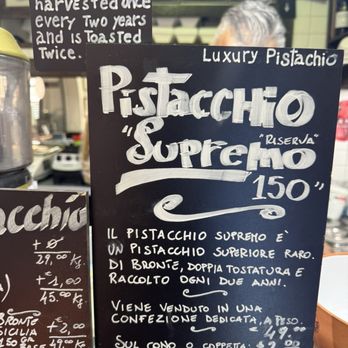 harvested once
every Two years
and is Toasted
Twice.
Luxury Pistachio
Pistacchio
"Supremo
"RISERVA"
150"
IL PISTACCHIO SUPREMO È
UN PISTACCHIO SUPERIORE RARO.
DI BRONTE, DOPPIA TOSTATURA E
RACCOLTO OGNI DUE ANNI.
VIENE VENDUTO IN UNA
CONFEZIONE DEDICATA, A PESO.
SUL CONO O COPPETTA:
acchio
+ 0
29,00 Kg.
+ 1,00
45,00 Kg.
BRONTE
SICILIA
+ 2,00
150 GR